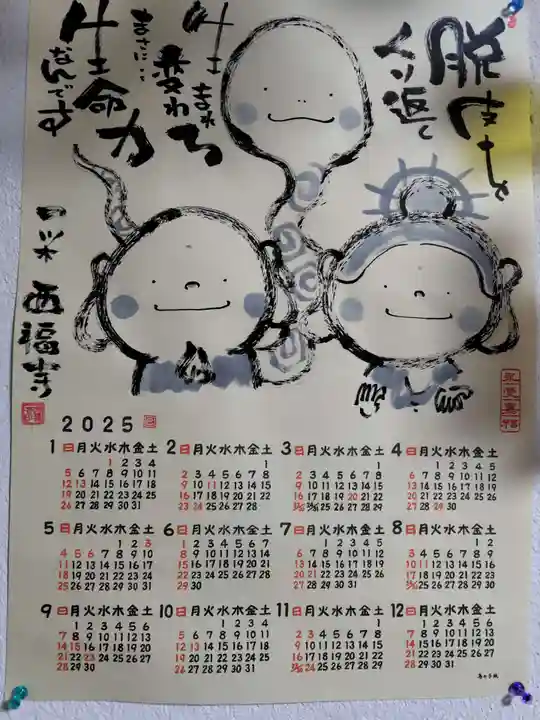 脱皮を
くり返し
生まれ
変わる
まさに…
生命力
なんです
西福寺
2025
1 日月火水木金土
1 2 3 4
5 6 7 8 9 10 11
12 13 14 15 16 17 18
19 20 21 22 23 24 25
26 27 28 29 30 31
2 日月火水木金土
1
2 3 4 5 6 7 8
9 10 11 12 13 14 15
16 17 18 19 20 21 22
23 24 25 26 27 28
3 日月火水木金土
1
2 3 4 5 6 7 8
9 10 11 12 13 14 15
16 17 18 19 20 21 22
23/30 24/31 25 26 27 28 29
4 日月火水木金土
1 2 3 4 5
6 7 8 9 10 11 12
13 14 15 16 17 18 19
20 21 22 23 24 25 26
27 28 29 30
5 日月火水木金土
1 2 3
4 5 6 7 8 9 10
11 12 13 14 15 16 17
18 19 20 21 22 23 24
25 26 27 28 29 30 31
6 日月火水木金土
1 2 3 4 5 6 7
8 9 10 11 12 13 14
15 16 17 18 19 20 21
22 23 24 25 26 27 28
29 30
7 日月火水木金土
1 2 3 4 5
6 7 8 9 10 11 12
13 14 15 16 17 18 19
20 21 22 23 24 25 26
27 28 29 30 31
8 日月火水木金土
1 2
3 4 5 6 7 8 9
10 11 12 13 14 15 16
17 18 19 20 21 22 23
24/31 25 26 27 28 29 30
9 日月火水木金土
1 2 3 4 5 6
7 8 9 10 11 12 13
14 15 16 17 18 19 20
21 22 23 24 25 26 27
28 29 30
10 日月火水木金土
1 2 3 4
5 6 7 8 9 10 11
12 13 14 15 16 17 18
19 20 21 22 23 24 25
26 27 28 29 30 31
11 日月火水木金土
1
2 3 4 5 6 7 8
9 10 11 12 13 14 15
16 17 18 19 20 21 22
23/30 24 25 26 27 28 29
12 日月火水木金土
1 2 3 4 5 6
7 8 9 10 11 12 13
14 15 16 17 18 19 20
21 22 23 24 25 26 27
28 29 30 31